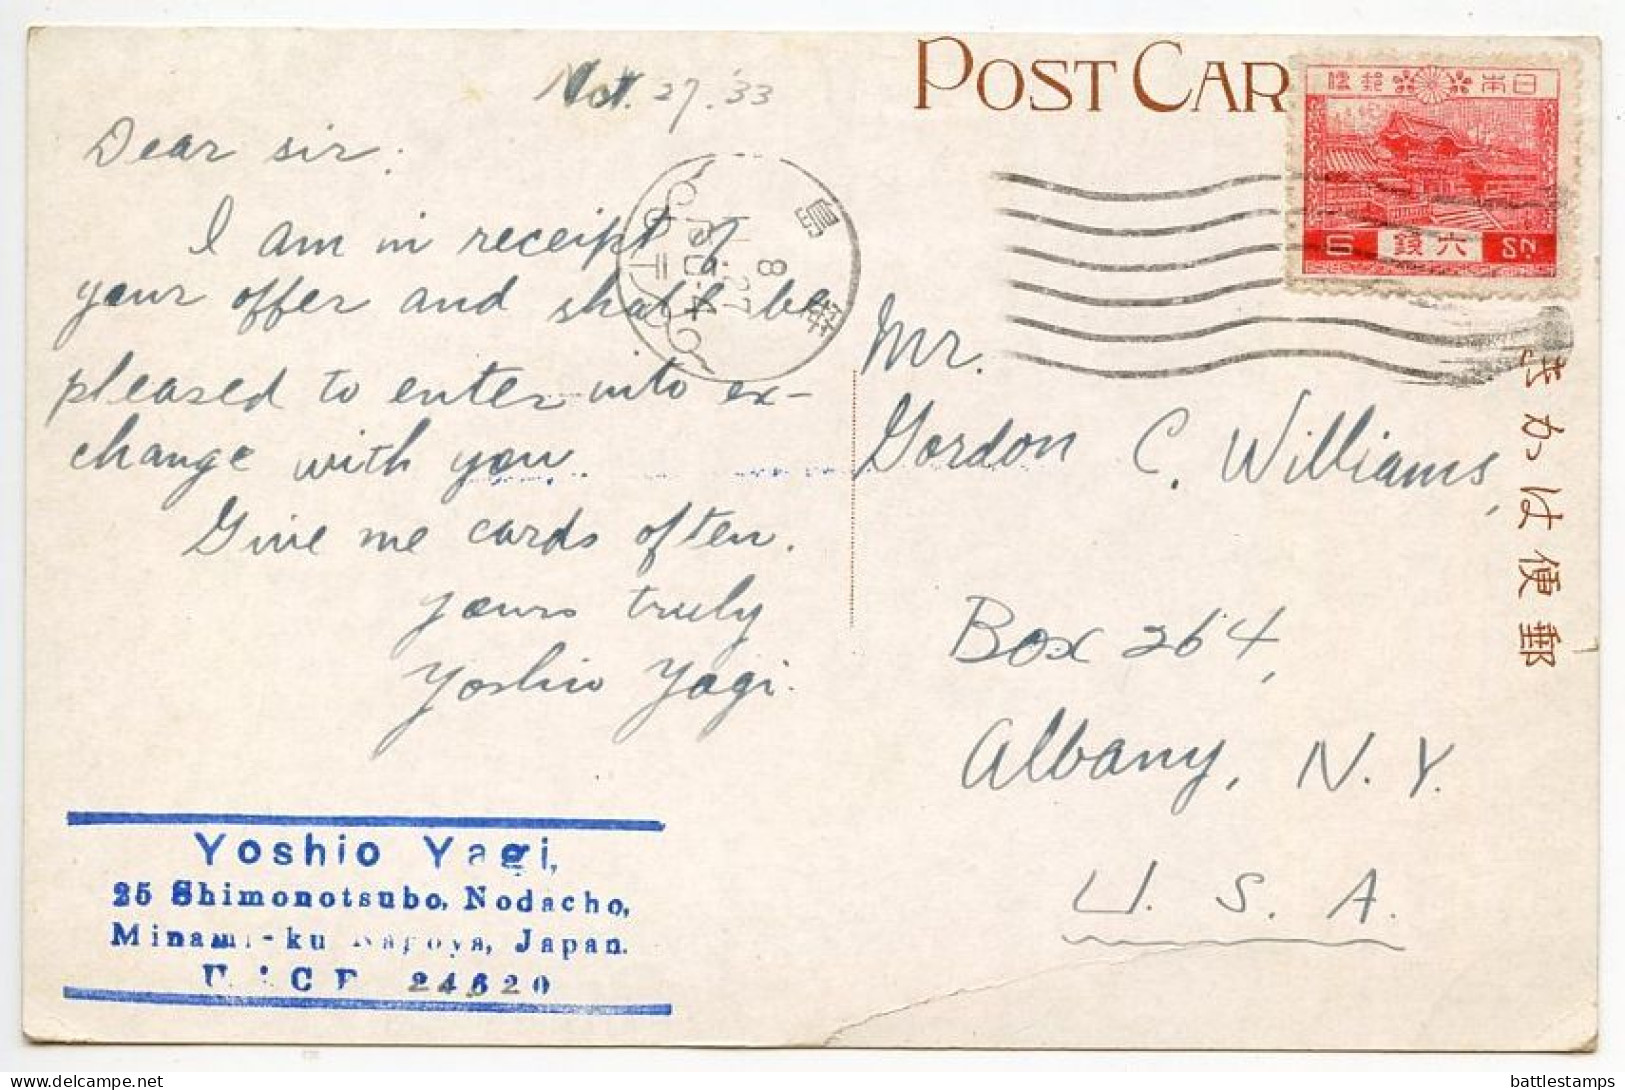 27. '33
POST CAR
日本 郵便
六錢
6 SN.
Dear sir:
I am in receipt of
your offer and shall be
pleased to enter into ex-
change with you.
Give me cards often.
yours truly
Yoshio Yagi.
8
11.27
Mr.
Gordon C. Williams,
Box 264,
Albany, N.Y.
U.S.A.
郵便はかき
Yoshio Yagi,
25 Shimonotsubo, Nodacho,
Minami-ku Nagoya, Japan.
24620
battlestamps